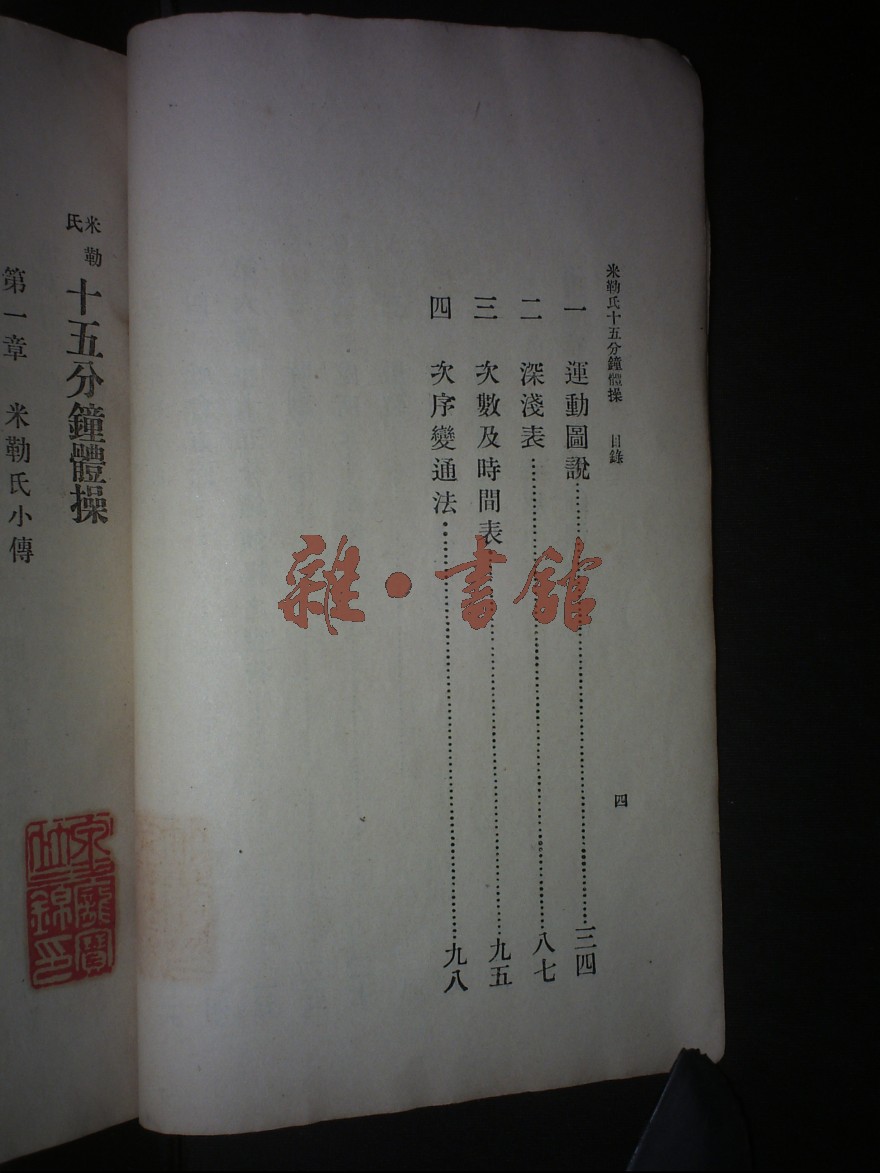 米勒氏十五分鐘體操 目錄 四
一 運動圖說……三四
二 深淺表……八七
三 次數及時間表……九五
四 次序變通法……九八
米勒氏 十五分鐘體操
第一章 米勒氏小傳
雜·書館